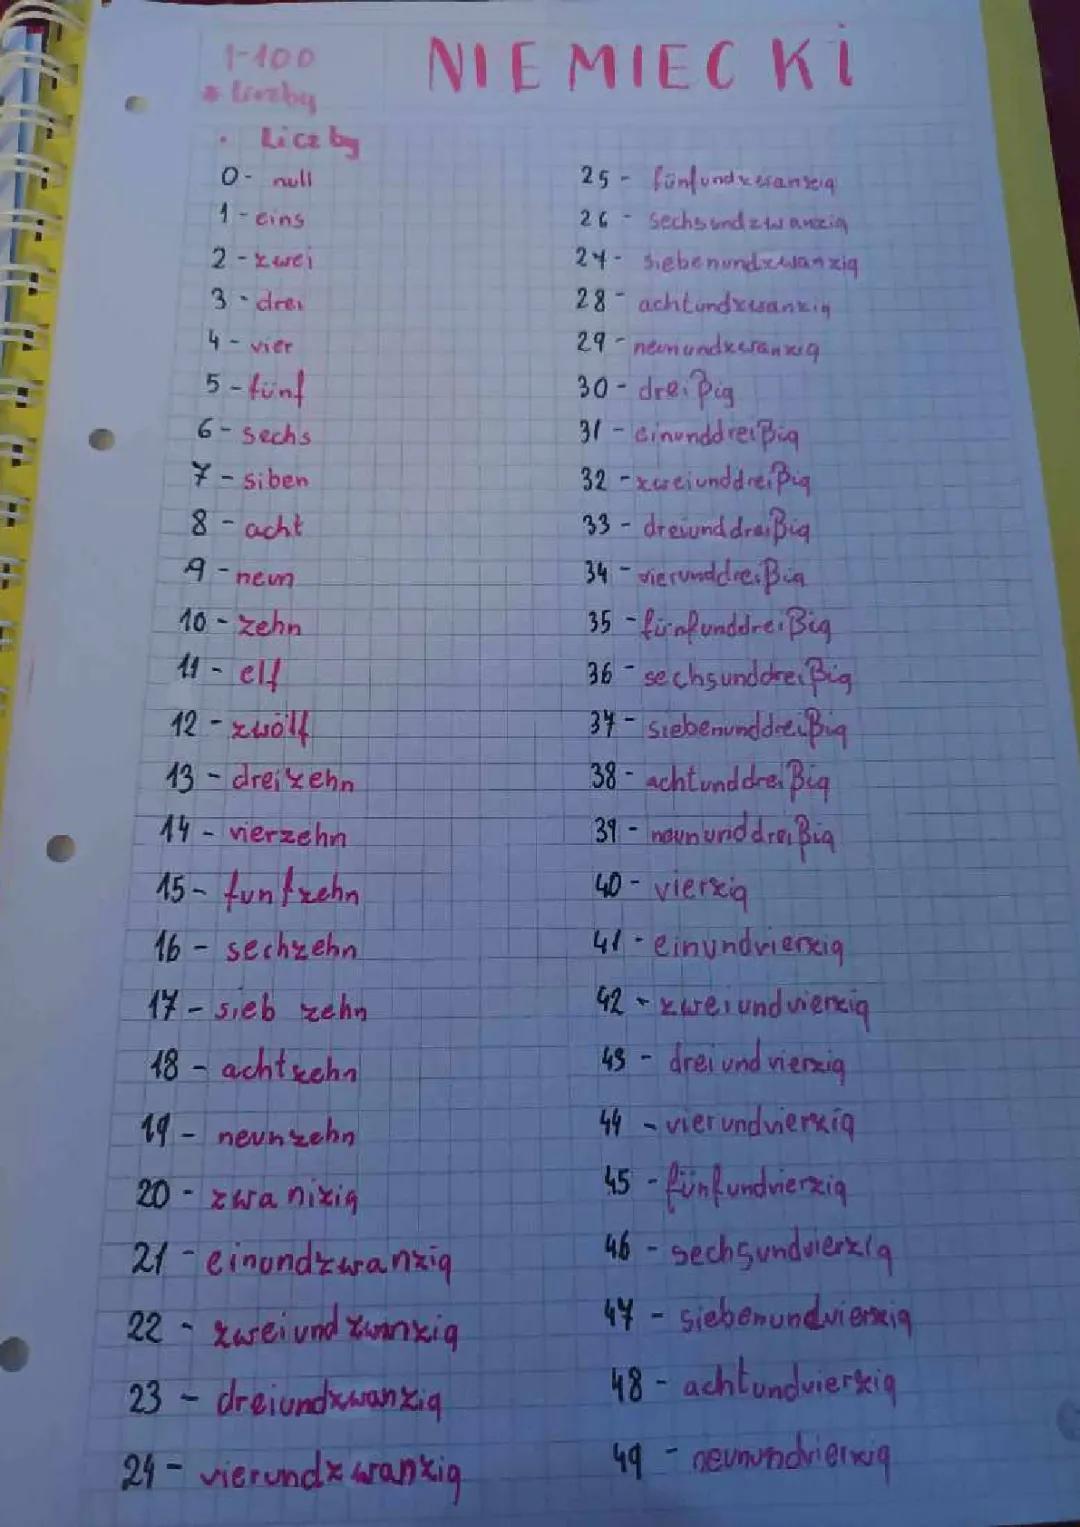 1-100
NIEMIECKI
* liczby
• Liczby
0 - null
1 - eins
2 - zwei
3 - drei
4 - vier
5 - fünf
6 - sechs
7 - siben
8 - acht
9 - neun
10 - zehn
11 - elf
12 - zwölf
13 - dreizehn
14 - vierzehn
15 - funfzehn
16 - sechzehn
17 - sieb zehn
18 - achtzehn
19 - neunzehn
20 - zwanizig
21 - einundzwanzig
22 - zweiund zwanzig
23 - dreiundzwanzig
24 - vierundzwanzig
25 - fünfundzwanzig
26 - sechsundzwanzig
27 - siebenundzwanzig
28 - achtundzwanzig
29 - neunundzwanzig
30 - dreißig
31 - einunddreißig
32 - zweiunddreißig
33 - dreiunddreißig
34 - vierunddreißig
35 - fünfunddreißig
36 - sechsunddreißig
37 - siebenunddreißig
38 - achtunddreißig
39 - neununddreißig
40 - vierzig
41 - einundvierzig
42 - zweiundvierzig
43 - dreiundvierzig
44 - vierundvierzig
45 - fünfundvierzig
46 - sechsundvierzig
47 - siebenundvierzig
48 - achtundvierzig
49 - neunundvierzig